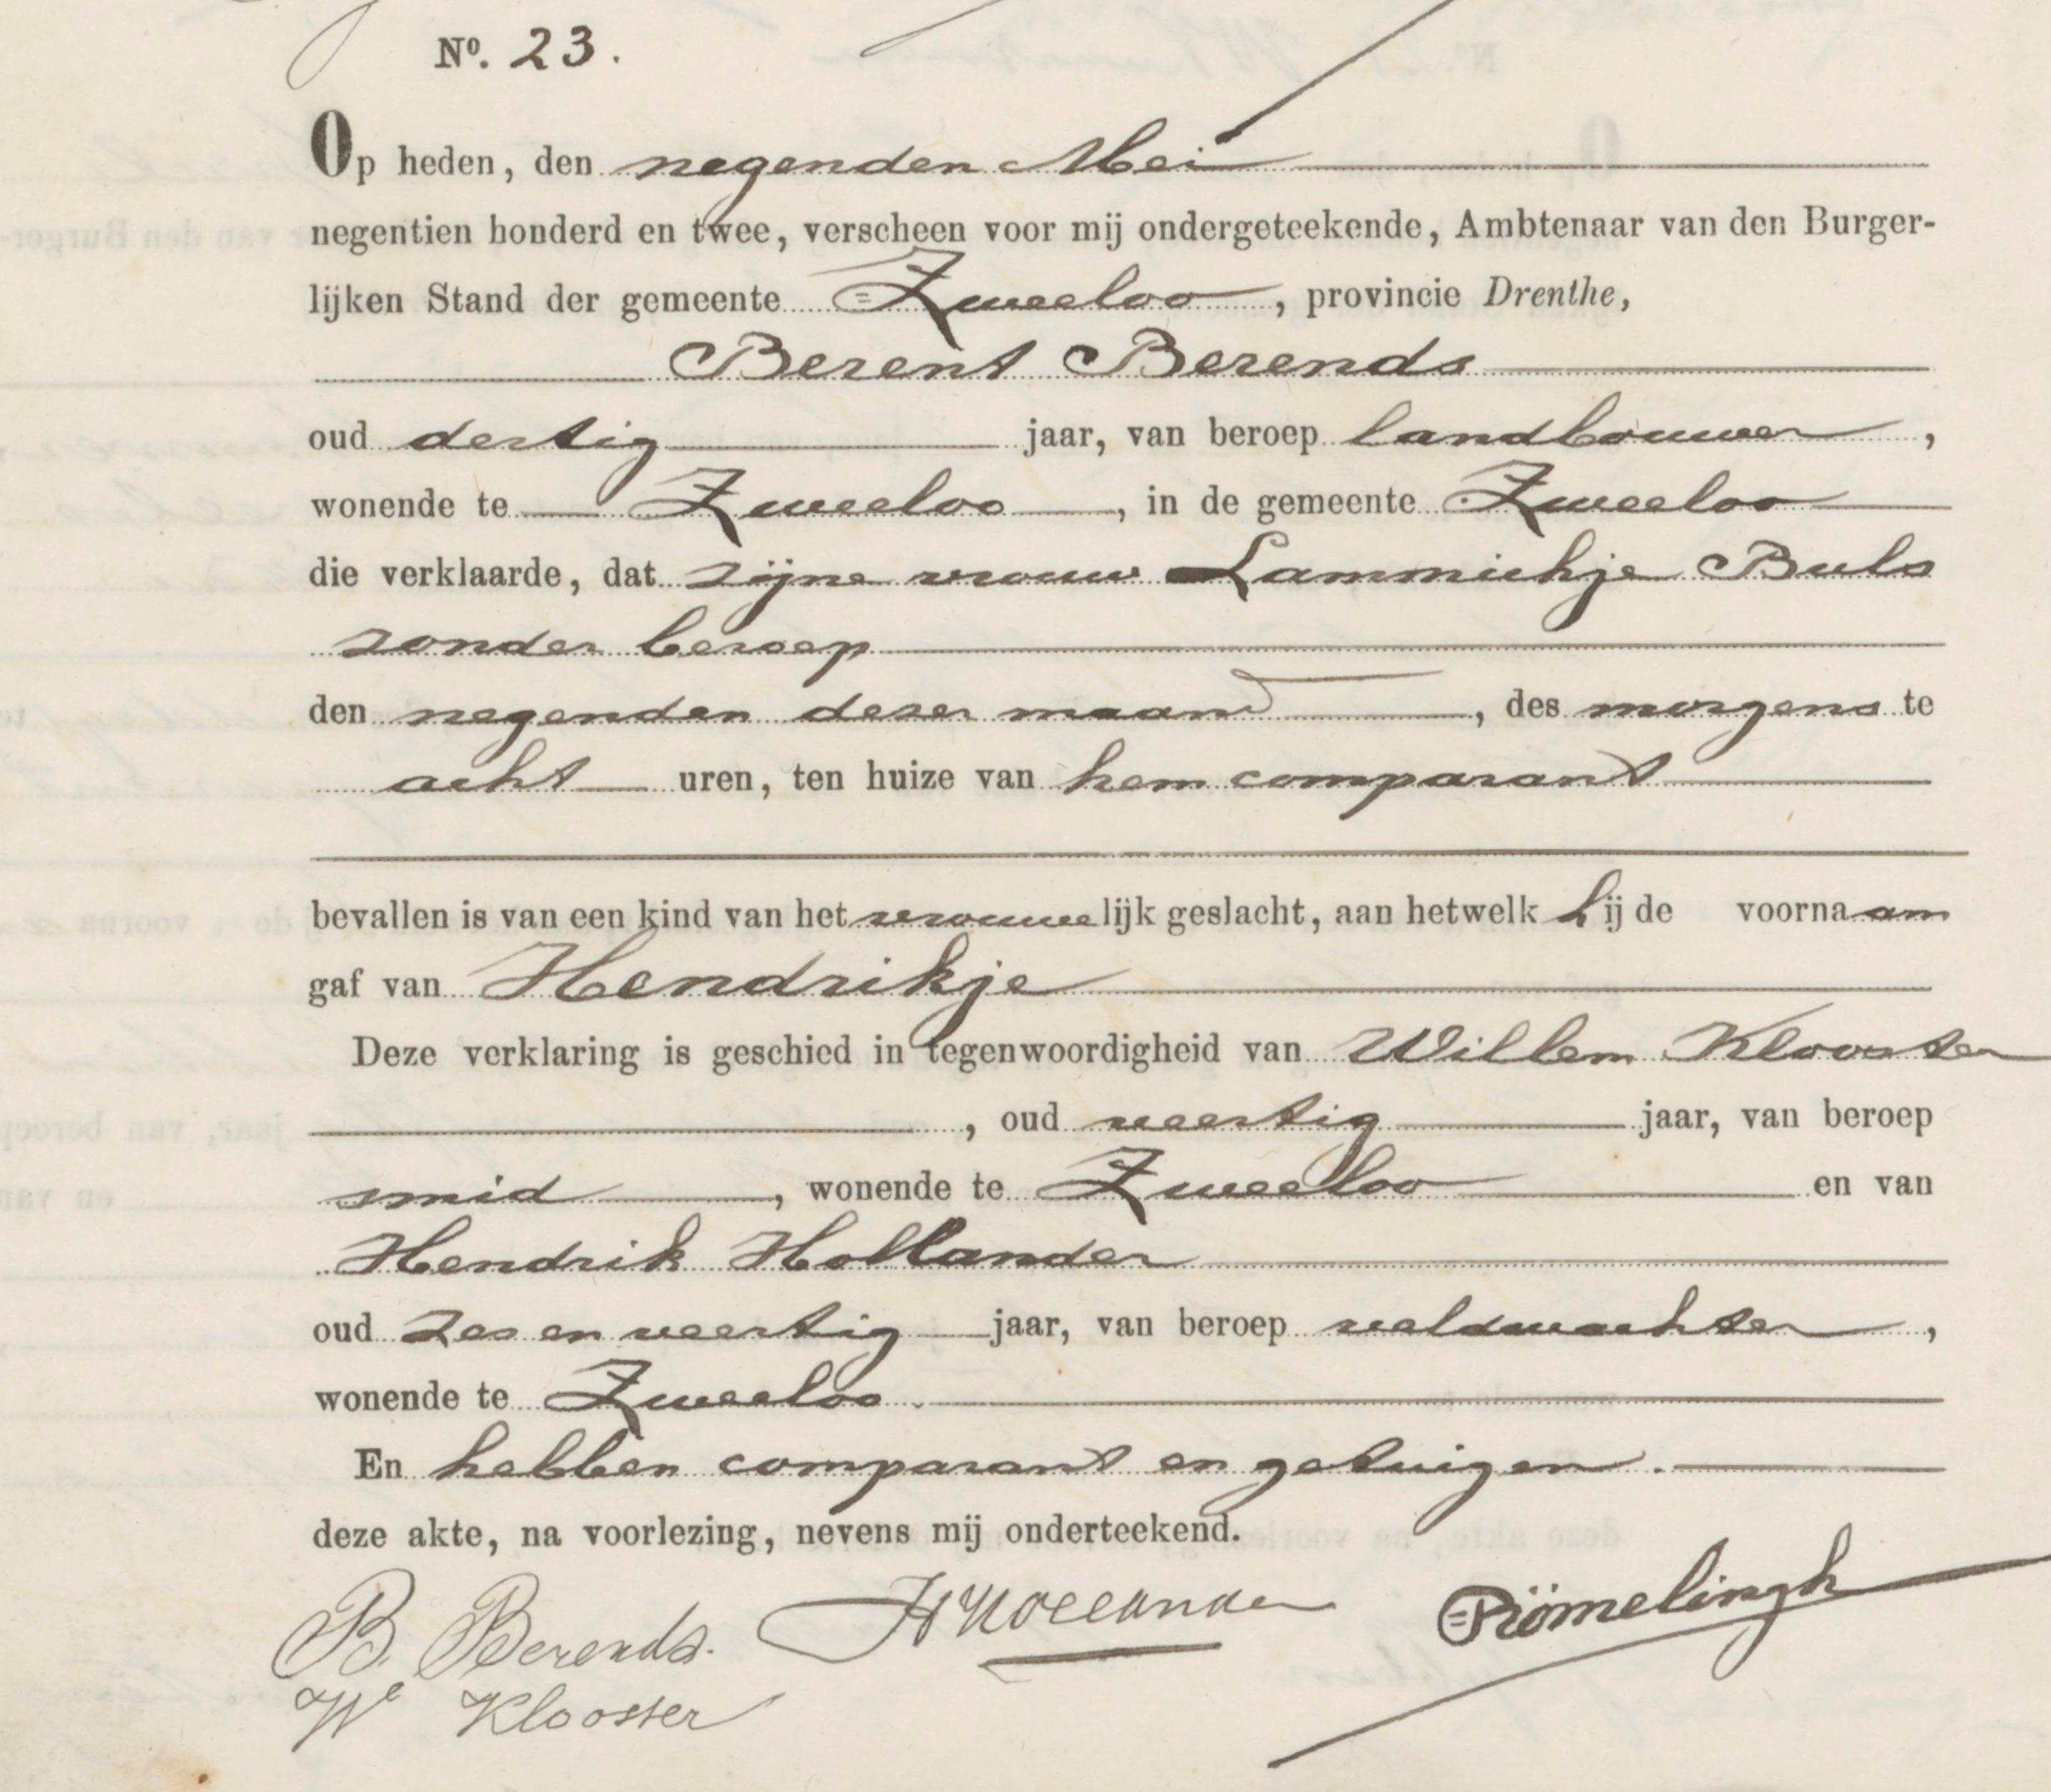 Nº. 23.
Op heden, den negenden Mei
negentien honderd en twee, verscheen voor mij ondergeteekende, Ambtenaar van den Burger-
lijken Stand der gemeente Zweeloo, provincie Drenthe,
Berent Berends
oud dertig jaar, van beroep landbouwer,
wonende te Zweeloo, in de gemeente Zweeloo
die verklaarde, dat zijne vrouw Lammichje Buls
zonder beroep
den negenden dezer maand, des morgens te
acht uren, ten huize van hem comparant
bevallen is van een kind van het vrouwelijk geslacht, aan hetwelk hij de voornaam
gaf van Hendrikje
Deze verklaring is geschied in tegenwoordigheid van Willem Klooster
, oud veertig jaar, van beroep
smid, wonende te Zweeloo en van
Hendrik Hollander
oud zes en veertig jaar, van beroep veldwachter,
wonende te Zweeloo.
En hebben comparant en getuigen.
deze akte, na voorlezing, nevens mij onderteekend.
B. Berends. H Hollander Römelingh
We Klooster